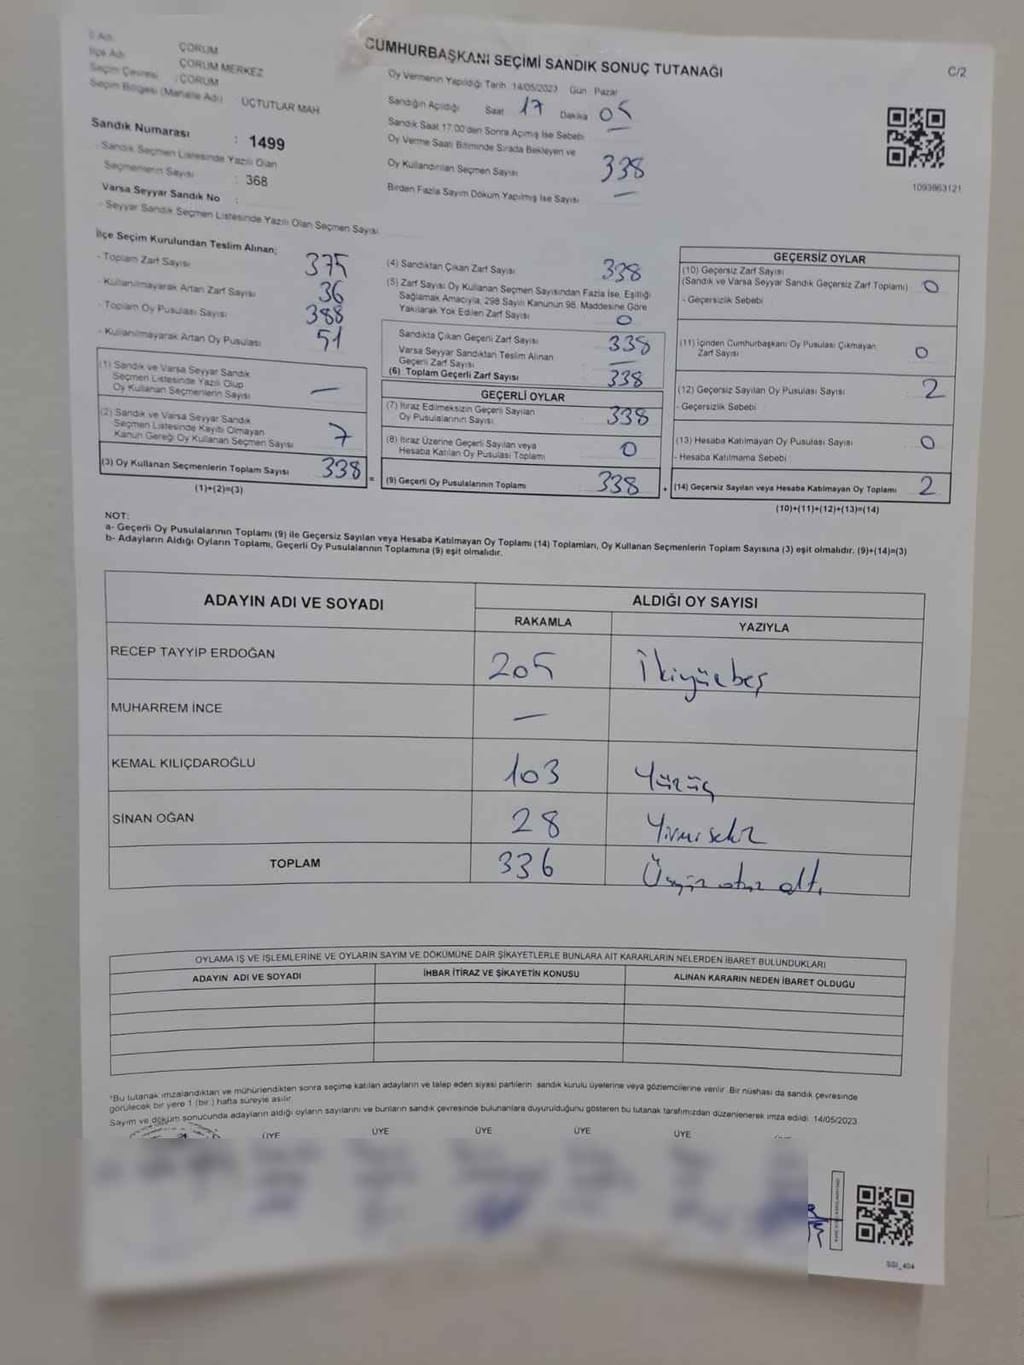 İl Adı
ÇORUM
İlçe Adı
ÇORUM MERKEZ
Seçim Çevresi : ÇORUM
Seçim Bölgesi (Mahalle Adı) ÜÇTUTLAR MAH
Sandık Numarası : 1499
- Sandık Seçmen Listesinde Yazılı Olan
Seçmenlerin Sayısı : 368
Varsa Seyyar Sandık No :
- Seyyar Sandık Seçmen Listesinde Yazılı Olan Seçmen Sayısı
CUMHURBAŞKANI SEÇİMİ SANDIK SONUÇ TUTANAĞI
C/2
Oy Vermenin Yapıldığı Tarih 14/05/2023 Gün Pazar
Sandığın Açıldığı Saat 17 Dakika 05
Sandık Saat 17:00'den Sonra Açmış İse Sebebi —
Oy Verme Saati Bitiminde Sırada Bekleyen ve
Oy Kullandırılan Seçmen Sayısı 338
Birden Fazla Sayım Döküm Yapılmış İse Sayısı —
1093863121
İlçe Seçim Kurulundan Teslim Alınan;
- Toplam Zarf Sayısı 375
- Kullanılmayarak Artan Zarf Sayısı 36
- Toplam Oy Pusulası Sayısı 388
- Kullanılmayarak Artan Oy Pusulası 51
(1) Sandık ve Varsa Seyyar Sandık
Seçmen Listesinde Yazılı Olup
Oy Kullanan Seçmenlerin Sayısı —
(2) Sandık ve Varsa Seyyar Sandık
Seçmen Listesinde Kaydı Olmayan
Kanun Gereği Oy Kullanan Seçmen Sayısı 7
(3) Oy Kullanan Seçmenlerin Toplam Sayısı 338 =
(1)+(2)=(3)
(4) Sandıktan Çıkan Zarf Sayısı 338
(5) Zarf Sayısı Oy Kullanan Seçmen Sayısından Fazla İse, Eşitliği
Sağlamak Amacıyla, 298 Sayılı Kanunun 98. Maddesine Göre
Yakılarak Yok Edilen Zarf Sayısı 0
Sandıkta Çıkan Geçerli Zarf Sayısı 338
Varsa Seyyar Sandıktan Teslim Alınan
Geçerli Zarf Sayısı
(6) Toplam Geçerli Zarf Sayısı 338
GEÇERLİ OYLAR
(7) İtiraz Edilmeksizin Geçerli Sayılan
Oy Pusulalarının Sayısı 338
(8) İtiraz Üzerine Geçerli Sayılan veya
Hesaba Katılan Oy Pusulası Toplamı 0
(9) Geçerli Oy Pusulalarının Toplamı 338 +
GEÇERSİZ OYLAR
(10) Geçersiz Zarf Sayısı
(Sandık ve Varsa Seyyar Sandık Geçersiz Zarf Toplamı) 0
- Geçersizlik Sebebi
(11) İçinden Cumhurbaşkanı Oy Pusulası Çıkmayan
Zarf Sayısı 0
(12) Geçersiz Sayılan Oy Pusulası Sayısı 2
- Geçersizlik Sebebi
(13) Hesaba Katılmayan Oy Pusulası Sayısı 0
- Hesaba Katılmama Sebebi
(14) Geçersiz Sayılan veya Hesaba Katılmayan Oy Toplamı 2
(10)+(11)+(12)+(13)=(14)
NOT:
a- Geçerli Oy Pusulalarının Toplamı (9) ile Geçersiz Sayılan veya Hesaba Katılmayan Oy Toplamı (14) Toplamları, Oy Kullanan Seçmenlerin Toplam Sayısına (3) eşit olmalıdır. (9)+(14)=(3)
b- Adayların Aldığı Oyların Toplamı, Geçerli Oy Pusulalarının Toplamına (9) eşit olmalıdır.
ADAYIN ADI VE SOYADI
ALDIĞI OY SAYISI
RAKAMLA YAZIYLA
RECEP TAYYİP ERDOĞAN 205 İkiyüzbeş
MUHARREM İNCE —
KEMAL KILIÇDAROĞLU 103 Yüzüç
SİNAN OĞAN 28 Yirmisekiz
TOPLAM 336 Üçyüz otuz altı
OYLAMA İŞ VE İŞLEMLERİNE VE OYLARIN SAYIM VE DÖKÜMÜNE DAİR ŞİKAYETLERLE BUNLARA AİT KARARLARIN NELERDEN İBARET BULUNDUKLARI
ADAYIN ADI VE SOYADI İHBAR İTİRAZ VE ŞİKAYETİN KONUSU ALINAN KARARIN NEDEN İBARET OLDUĞU
*Bu tutanak imzalandıktan ve mühürlendikten sonra seçime katılan adayların ve talep eden siyasi partilerin sandık kurulu üyelerine veya gözlemcilerine verilir. Bir nüshası da sandık çevresinde
görülecek bir yere 1 (bir) hafta süreyle asılır.
Sayım ve döküm sonucunda adayların aldığı oyların sayılarını ve bunların sandık çevresinde bulunanlara duyurulduğunu gösteren bu tutanak tarafımızdan düzenlenerek imza edildi. 14/05/2023
ÜYE ÜYE ÜYE ÜYE ÜYE